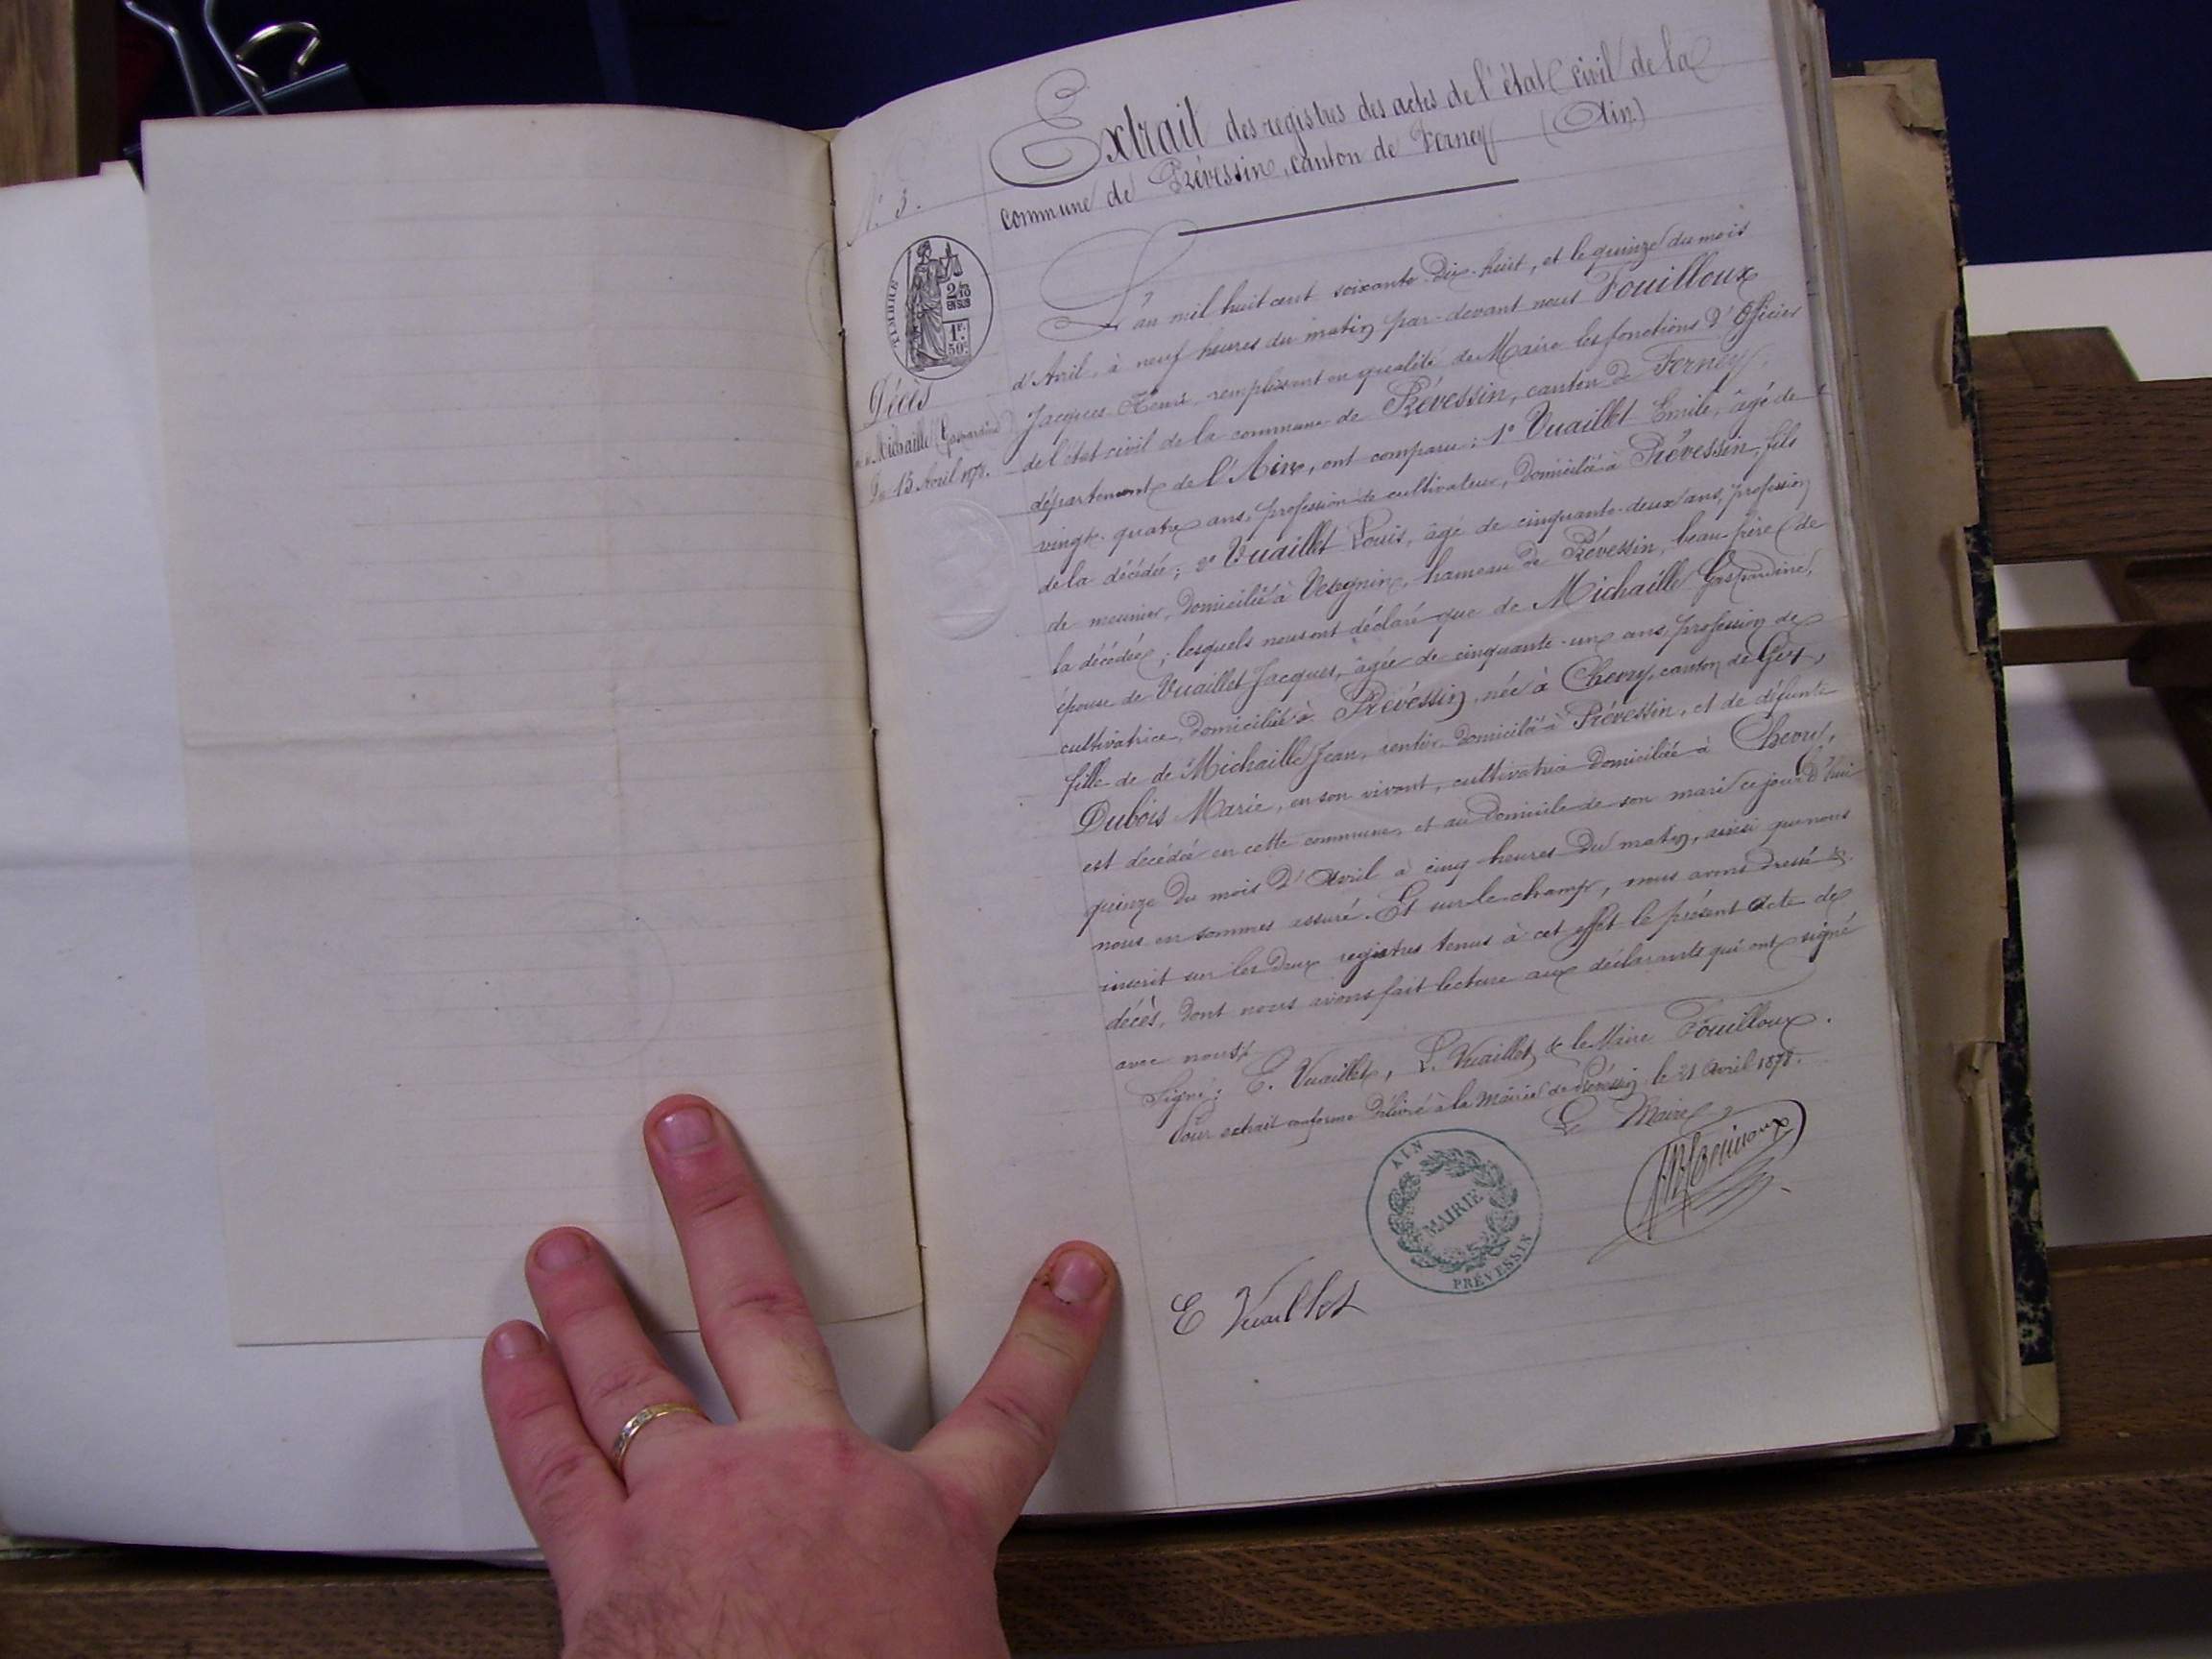 Extrait des registres des actes de l'état civil de la
commune de Prévessin, canton de Ferney (Ain)
N.° 3.
TIMBRE
2/10
EN SUS
1F.
50c
Décès
de Michaille Gaspardine
Du 15 Avril 1878.
L'an mil huit cent soixante-dix-huit, et le quinze du mois
d'Avril, à neuf heures du matin par-devant nous Fouilloux
Jacques Henri, remplissant en qualité de Maire les fonctions d'Officier
de l'état civil de la commune de Prévessin, canton de Ferney,
département de l'Ain, ont comparu : 1° Vuaillet Emile, âgé de
vingt-quatre ans, profession de cultivateur, domicilié à Prévessin, fils
de la décédée ; 2° Vuaillet Louis, âgé de cinquante-deux ans, profession
de meunier, domicilié à Vésegnin, hameau de Prévessin, beau-frère de
la décédée ; lesquels nous ont déclaré que de Michaille Gaspardine,
épouse de Vuaillet Jacques, âgée de cinquante-un ans, profession de
cultivatrice, domiciliée à Prévessin, née à Chevry, canton de Gex,
fille de de Michaille Jean, rentier, domicilié à Prévessin, et de défunte
Dubois Marie, en son vivant, cultivatrice domiciliée à Chevry,
est décédée en cette commune, et au domicile de son mari ce jourd'hui
quinze du mois d'Avril à cinq heures du matin, ainsi que nous
nous en sommes assuré. Et sur-le-champ, nous avons dressé &
inscrit sur les deux registres tenus à cet effet le présent acte de
décès, dont nous avons fait lecture aux déclarants qui ont signé
avec nous.
Signé : E. Vuaillet, L. Vuaillet & le Maire Fouilloux.
Pour extrait conforme délivré à la Mairie de Prévessin le 21 Avril 1878.
Le Maire
AIN
MAIRIE
PRÉVESSIN
E Vuaillet